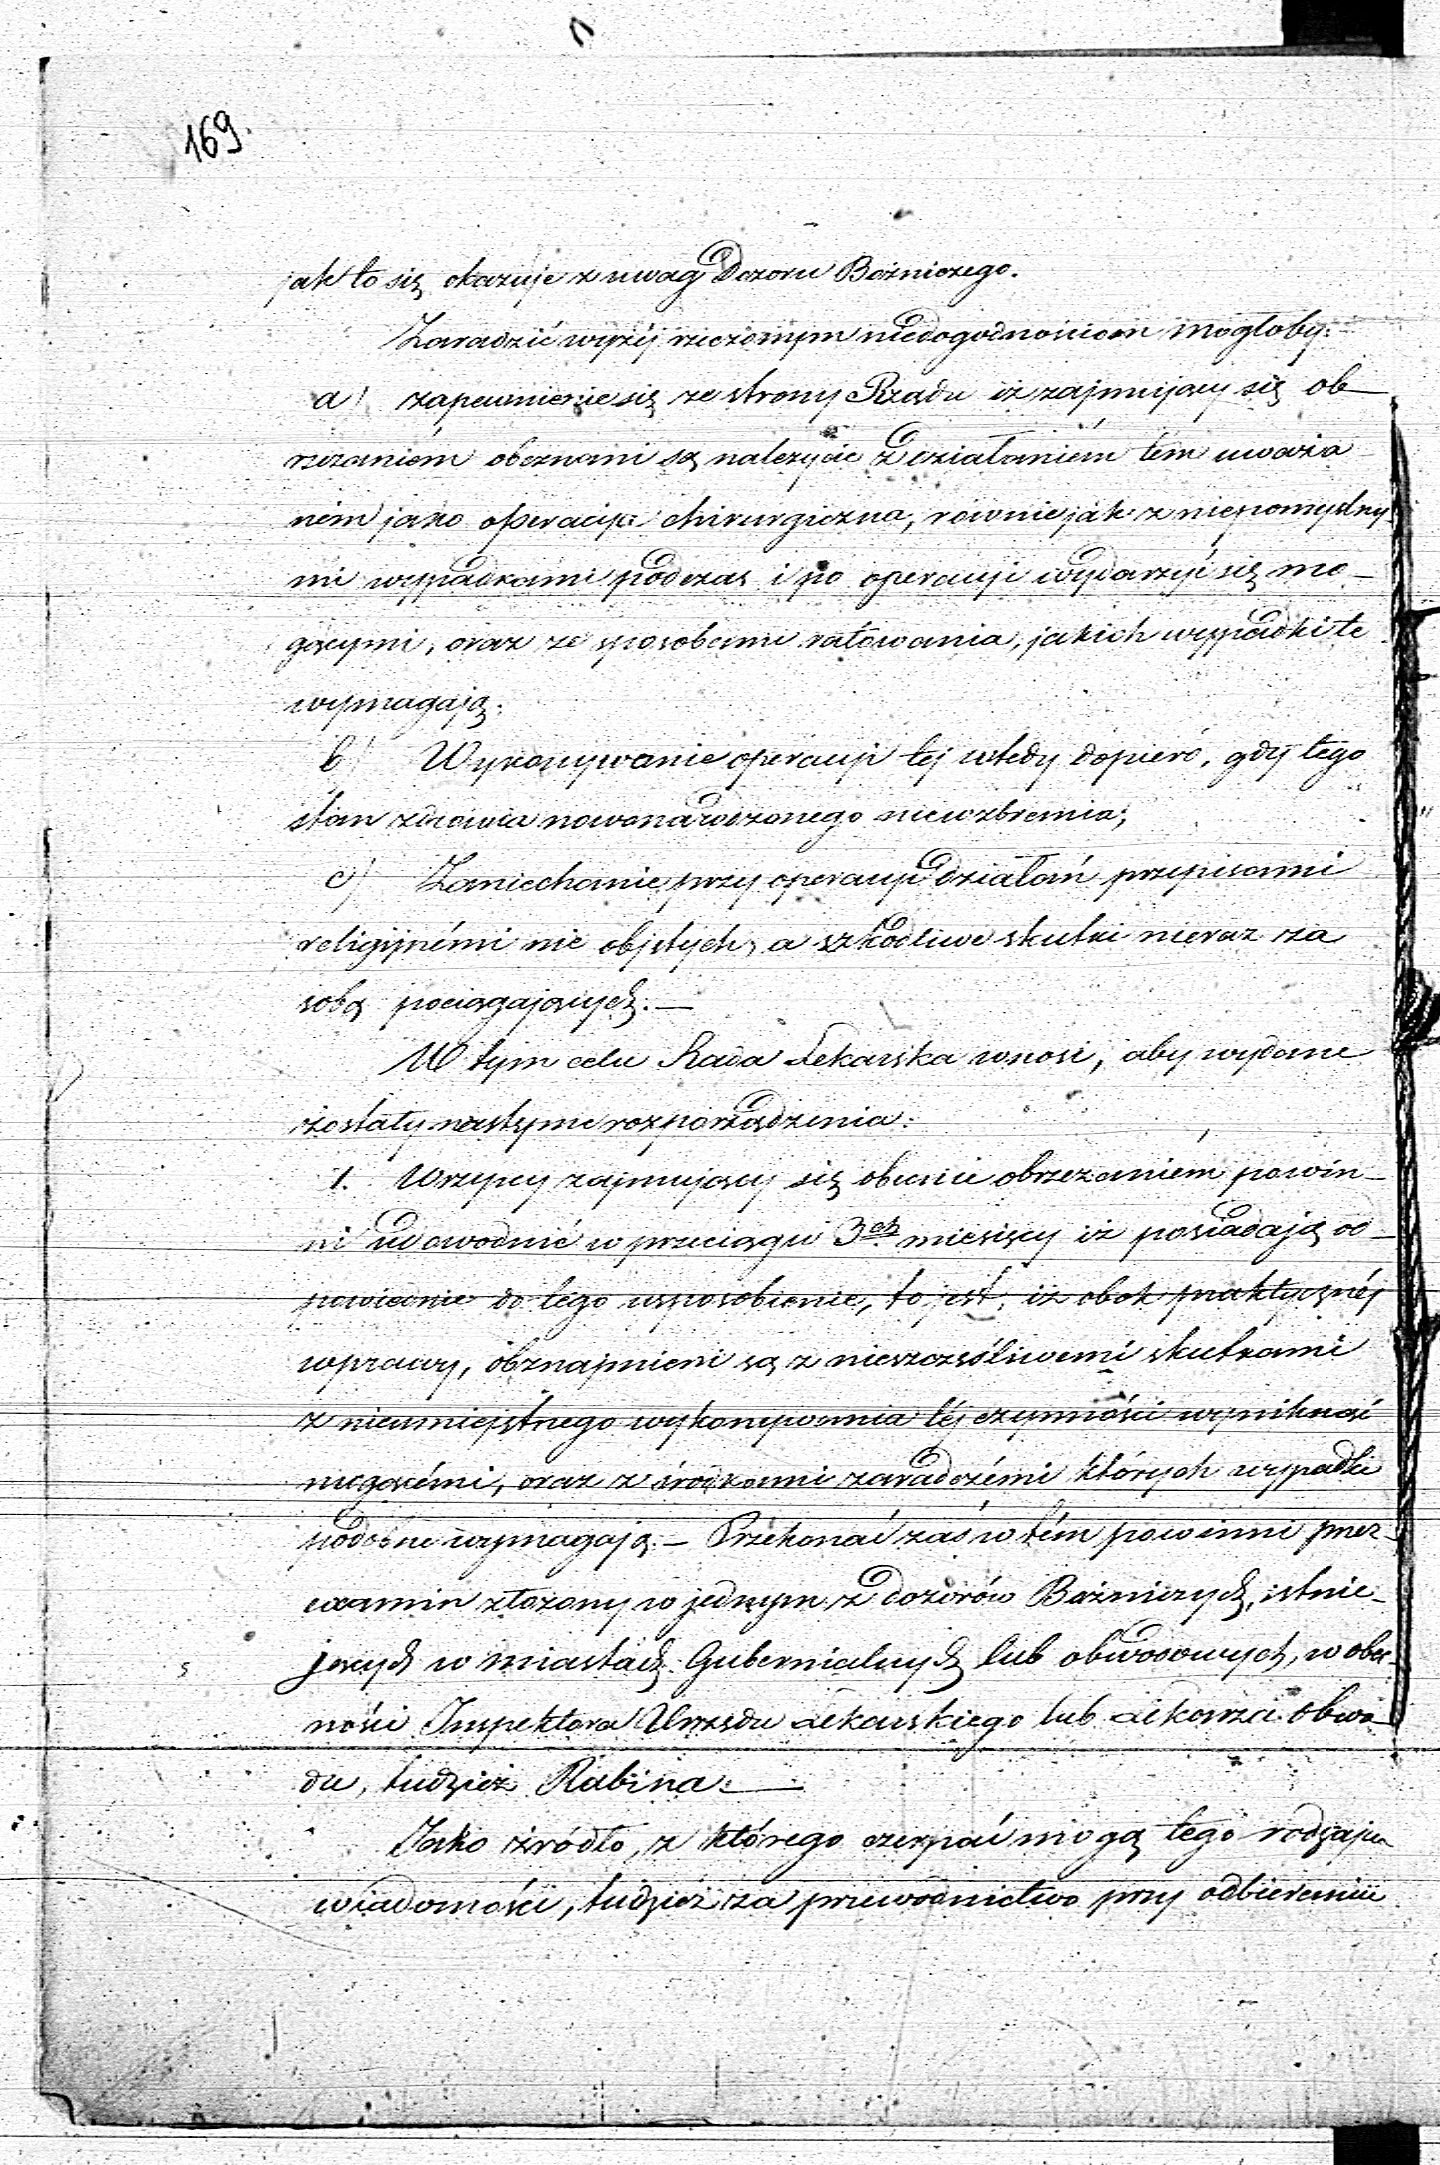 169.
jak to się okazuje z uwag Dozoru Bożniczego.
Zaradzić wyżéj rzeczonym niedogodnościom mogłoby:
a/ zapewnienie się ze strony Rządu iż zajmujący się ob-
rzezaniém obeznani są należycie z działaniém tém uważa
ném jako operacija chirurgiczna, równie jak z niepomyślny-
mi wypadkami podczas i po operacji wydarzyć się mo-
gącymi, oraz ze sposobami ratowania, jakich wypadki te
wymagają.
b/ Wykonywanie operacji téj wtedy dopiero, gdy tego
stan zdrowia nowonarodzonego niewzbrania;
c/ Zaniechanie przy operacji działań przepisami
religijnémi nie objętych, a szkodliwe skutki nieraz za
sobą pociągających.—
W tym celu Rada Lekarska wnosi, aby wydane
zostały następne rozporządzenia:
1. Wszyscy zajmujący się obecnie obrzezaniém powin-
ni udowodnić w przeciągu 3ch miesięcy iż posiadają od-
powiednie do tego usposobienie, to jest, iż obok praktycznéj
wprawy, obznajmieni są z nieszczęśliwemi skutkami
z nieumiejętnego wykonywania téj czynności wyniknąć
mogącémi, oraz z środkami zaradczémi których wypadki
podobne wymagają.— Przekonać zaś w tém powinni przez
examin złożony w jednym z dozorów Bożniczych, istnie-
jących w miastach Gubernialnych lub obwodowych, w obec-
ności Inspektora Urzędu Lekarskiego lub Lekarza obwo-
du, tudzież Rabina.—
Jako źródło, z którego czerpać mogą tego rodzaju
wiadomości, tudzież za przewodnictwo przy odbieraniu